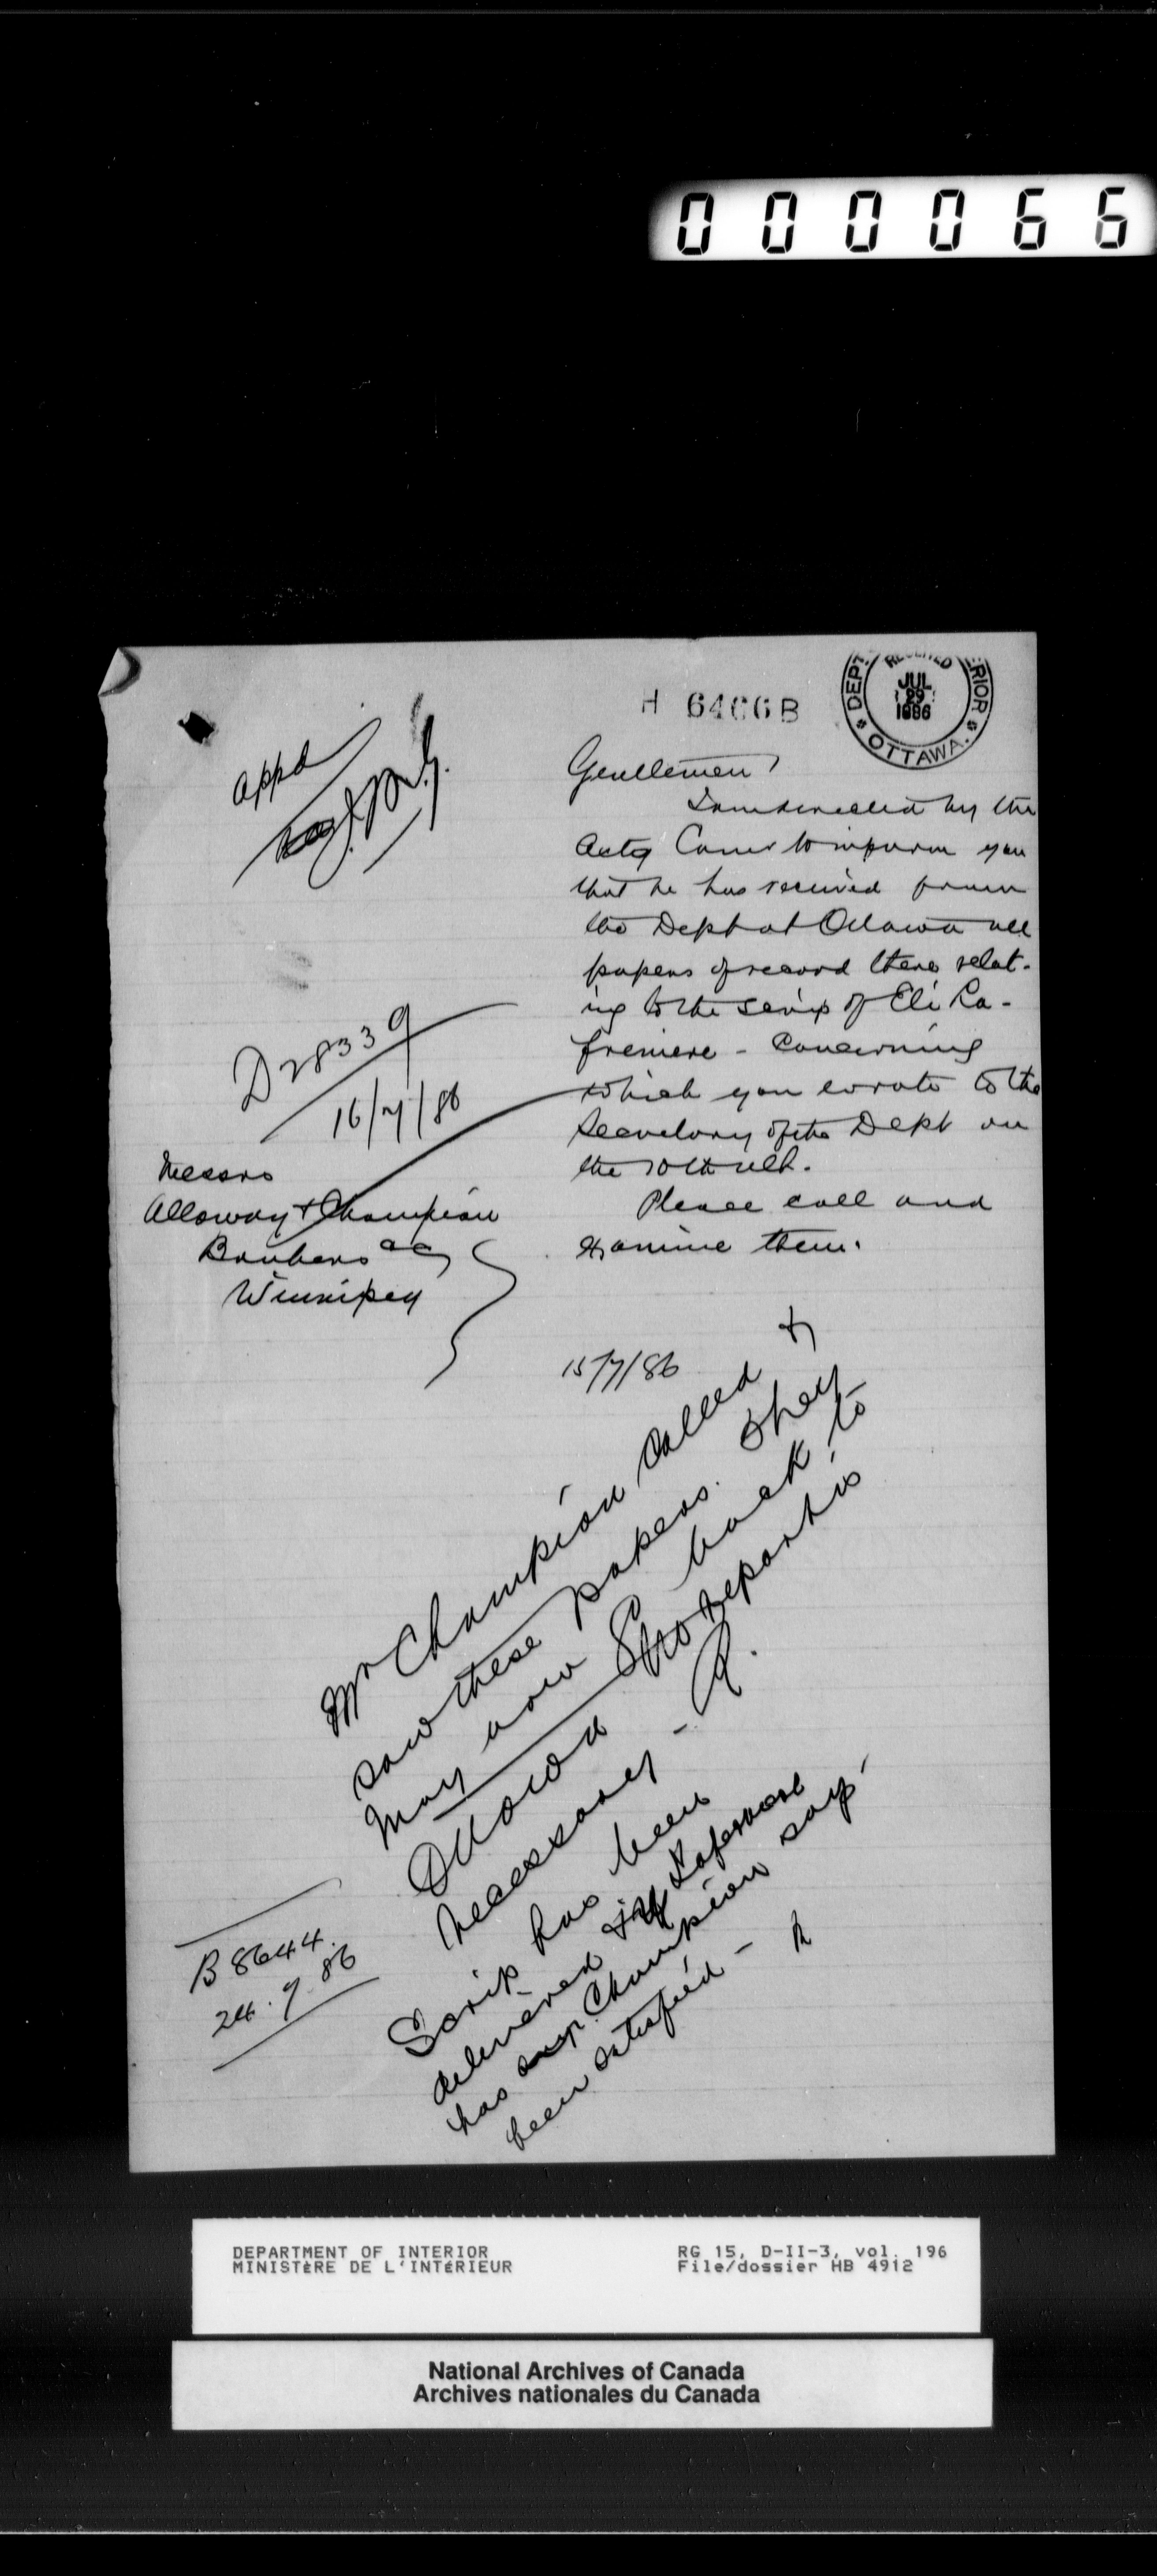 000066
H 6466 B
DEPT. RIOR
RECEIVED
JUL
29
1886
OTTAWA.
Appd
Gentlemen,
I am directed by the
Actg Comr to inform you
that he has received from
the Dept at Ottawa all
papers of record there relat-
ing to the scrip of Eli La-
freniere - concerning
which you wrote to the
Secretary of the Dept on
the 10th ult.
Please call and
examine them.
D28339
16/7/86
Messrs
Alloway & Champion
Bankers
Winnipeg
15/7/86
Mr Champion called &
saw these papers. They
may now go back to
Ottawa no report is
necessary - R.
Scrip has been
delivered Lafreniere
has Champion says
been satisfied - R
B 8644.
24.7.86
DEPARTMENT OF INTERIOR
MINISTÈRE DE L'INTÉRIEUR
RG 15, D-II-3, vol. 196
File/dossier HB 4912
National Archives of Canada
Archives nationales du Canada